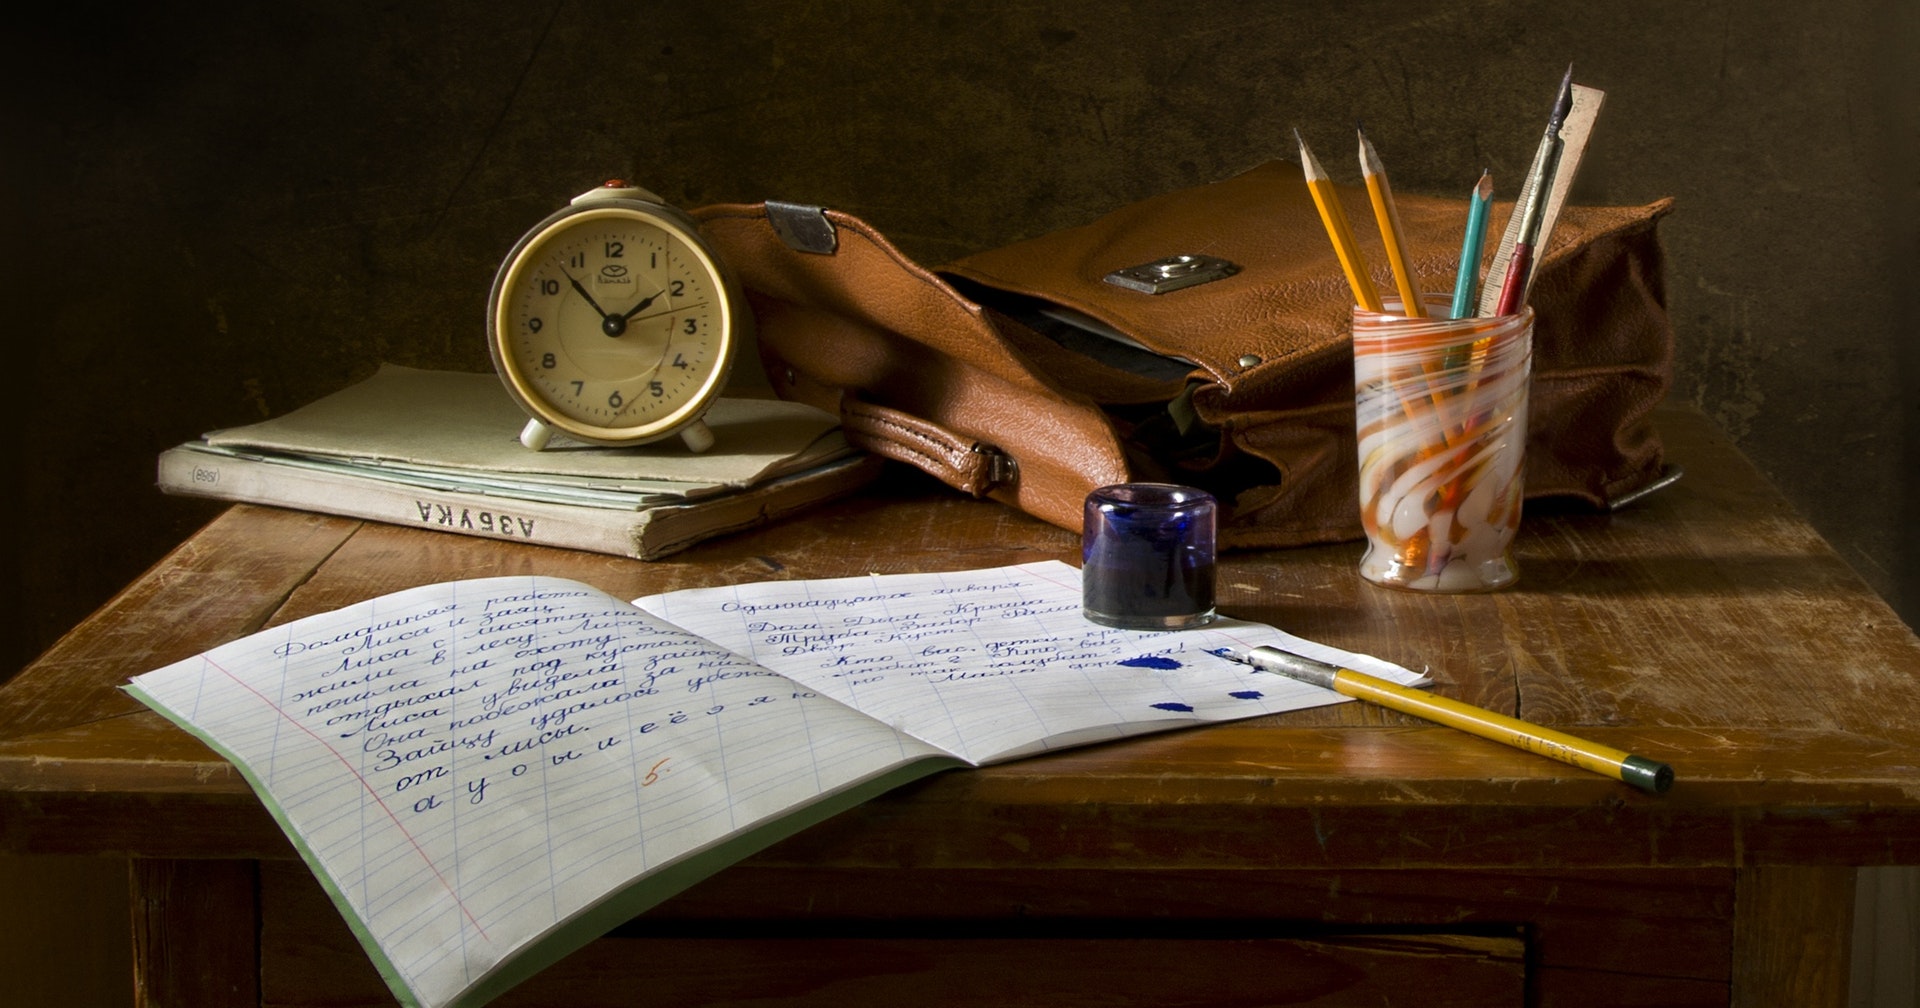 12
1
2
3
4
5
6
7
8
9
10
11
(1958)
АЗБУКА
Домашняя работа
Лиса и заяц.
Лиса с лисятами
жили в лесу. Лиса
пошла на охоту.
отдыхал под кустом
Лиса увидела зайку
Она побежала за ним
Зайцу удалось
от лисы.
а у о ы и е ё э я ю
5.
Одиннадцатое января
Дом. Дым. Крыша
Труба. Забор. Рама
Двор. Куст.
Кто вас, детки,
любит? Кто вас
но так голубит?
Мама дорогая!